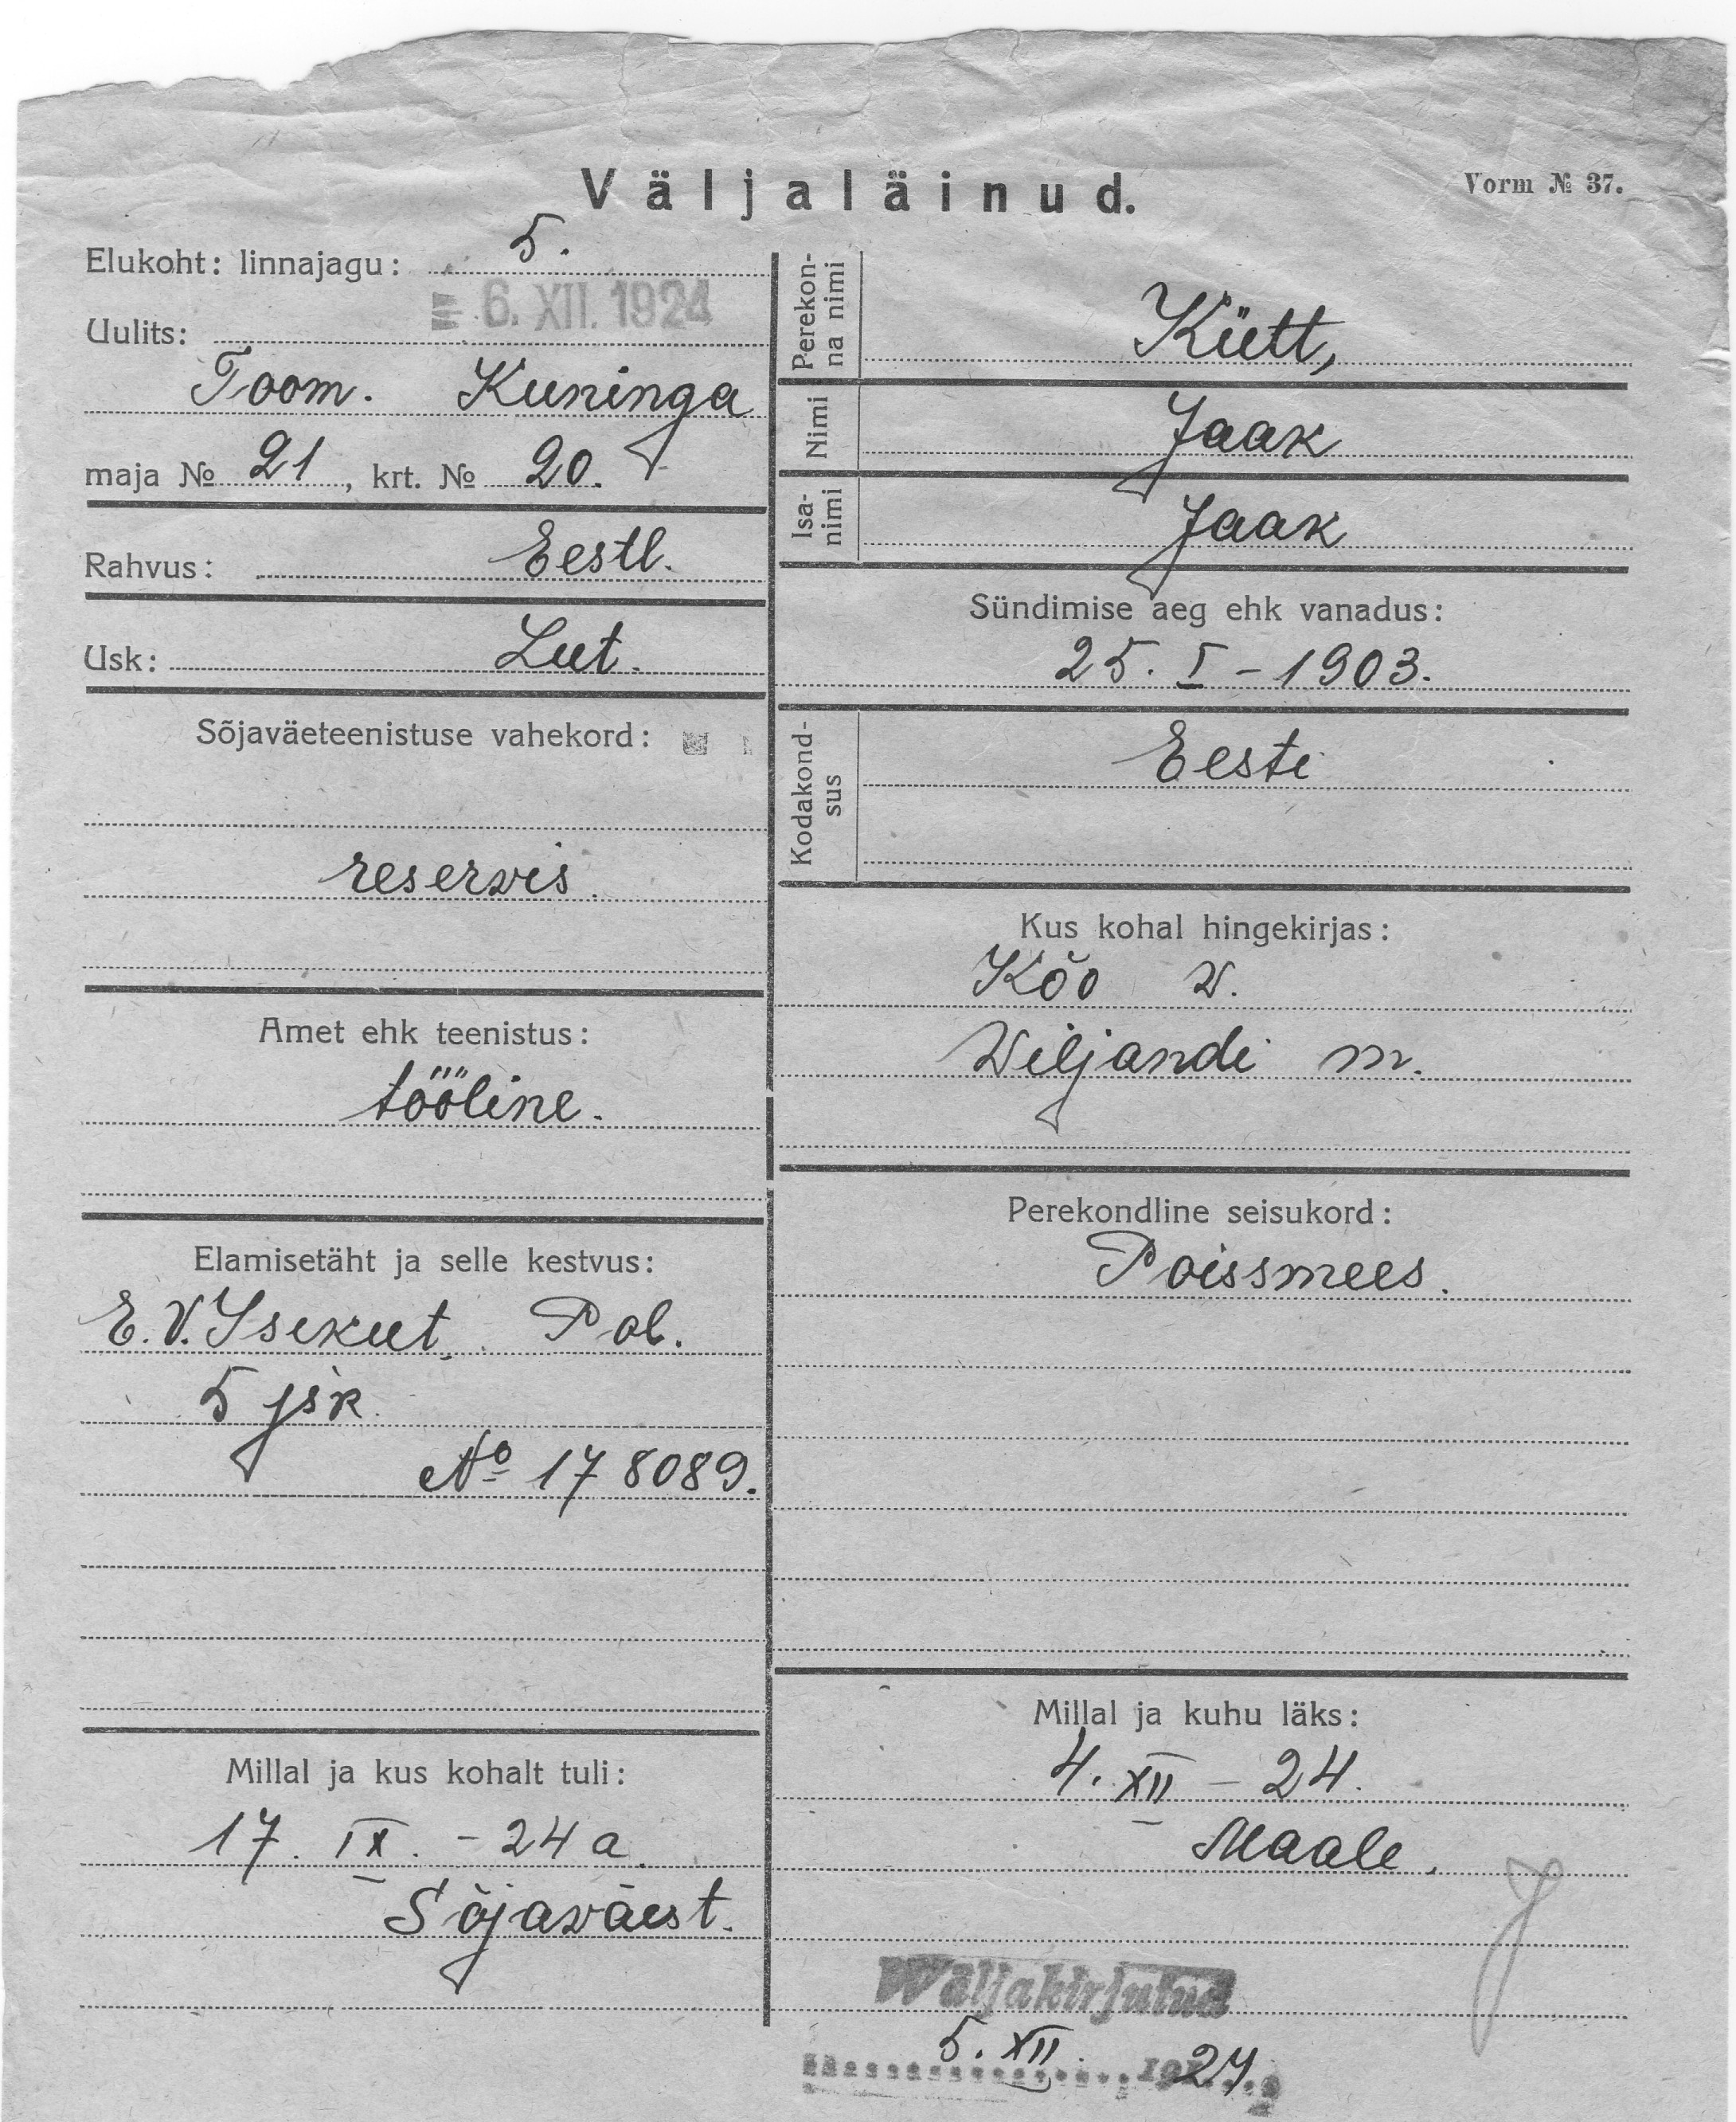 Väljaläinud.
Vorm № 37.
Elukoht: linnajagu: 5.
6. XII. 1924
Uulits:
Toom. Kuninga
maja № 21, krt. № 20.
Rahvus: Eestl.
Usk: Lut.
Sõjaväeteenistuse vahekord:
reservis.
Amet ehk teenistus:
tööline.
Elamisetäht ja selle kestvus:
E.V. Isikut. Pol.
5 jsk.
№ 178089.
Millal ja kus kohalt tuli:
17. IX. - 24 a.
Sõjawäest.
Perekon-
na nimi
Kütt,
Nimi
Jaak
Isa-
nimi
Jaak
Sündimise aeg ehk vanadus:
25. I - 1903.
Kodakond-
sus
Eesti
Kus kohal hingekirjas:
Kõo w.
Wiljandi m.
Perekondline seisukord:
Poissmees.
Millal ja kuhu läks:
4. XII - 24.
Maale.
Wäljakirjutud
5. XII. 24